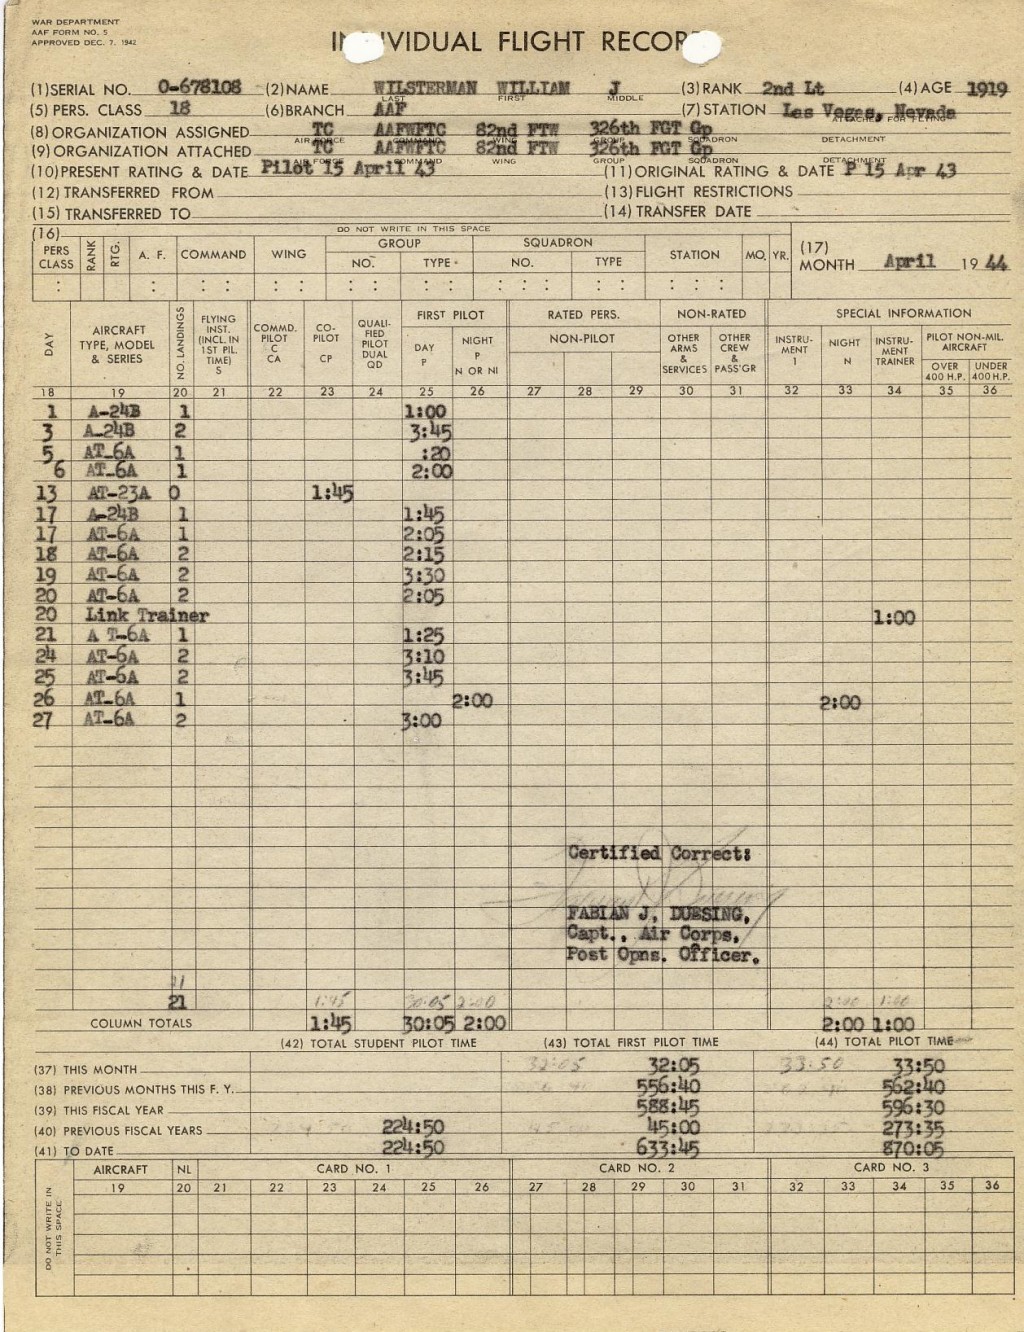 WAR DEPARTMENT
AAF FORM NO. 5
APPROVED DEC. 7, 1942
INDIVIDUAL FLIGHT RECORD
(1) SERIAL NO. O-678108 (2) NAME WILSTERMAN WILLIAM J (3) RANK 2nd Lt (4) AGE 1919
LAST FIRST MIDDLE
(5) PERS. CLASS 18 (6) BRANCH AAF (7) STATION Las Vegas, Nevada
(8) ORGANIZATION ASSIGNED TC AAFWFTC 82nd FTW 326th FGT Gp
AIR FORCE COMMAND WING GROUP SQUADRON DETACHMENT
(9) ORGANIZATION ATTACHED TC AAFWFTC 82nd FTW 326th FGT Gp
AIR FORCE COMMAND WING GROUP SQUADRON DETACHMENT
(10) PRESENT RATING & DATE Pilot 15 April 43 (11) ORIGINAL RATING & DATE P 15 Apr 43
(12) TRANSFERRED FROM (13) FLIGHT RESTRICTIONS
(15) TRANSFERRED TO (14) TRANSFER DATE
(16) DO NOT WRITE IN THIS SPACE
PERS CLASS RANK RTG. A. F. COMMAND WING GROUP NO. TYPE SQUADRON NO. TYPE STATION MO. YR. (17) MONTH April 1944
DAY AIRCRAFT TYPE, MODEL & SERIES NO. LANDINGS FLYING INST. (INCL. IN 1ST PIL. TIME) S COMMD. PILOT C CA CO-PILOT CP QUALI-FIED PILOT DUAL QD FIRST PILOT DAY P NIGHT P N OR NI RATED PERS. NON-PILOT NON-RATED OTHER ARMS & SERVICES OTHER CREW & PASS'GR SPECIAL INFORMATION INSTRU-MENT I NIGHT N INSTRU-MENT TRAINER PILOT NON-MIL. AIRCRAFT OVER 400 H.P. UNDER 400 H.P.
18 19 20 21 22 23 24 25 26 27 28 29 30 31 32 33 34 35 36
1 A-24B 1 1:00
3 A-24B 2 3:45
5 AT-6A 1 :20
6 AT-6A 1 2:00
13 AT-23A 0 1:45
17 A-24B 1 1:45
17 AT-6A 1 2:05
18 AT-6A 2 2:15
19 AT-6A 2 3:30
20 AT-6A 2 2:05
20 Link Trainer 1:00
21 A T-6A 1 1:25
24 AT-6A 2 3:10
25 AT-6A 2 3:45
26 AT-6A 1 2:00 2:00
27 AT-6A 2 3:00
Certified Correct:
FABIAN J. DUESING,
Capt., Air Corps,
Post Opns. Officer.
21
21 1:45 30:05 2:00 2:00 1:00
COLUMN TOTALS 1:45 30:05 2:00 2:00 1:00
(42) TOTAL STUDENT PILOT TIME (43) TOTAL FIRST PILOT TIME (44) TOTAL PILOT TIME
(37) THIS MONTH 32:05 32:05 33:50 33:50
(38) PREVIOUS MONTHS THIS F. Y. 556:40 562:40
(39) THIS FISCAL YEAR 588:45 596:30
(40) PREVIOUS FISCAL YEARS 224:50 45:00 273:35
(41) TO DATE 224:50 633:45 870:05
DO NOT WRITE IN THIS SPACE
AIRCRAFT NL CARD NO. 1 CARD NO. 2 CARD NO. 3
19 20 21 22 23 24 25 26 27 28 29 30 31 32 33 34 35 36